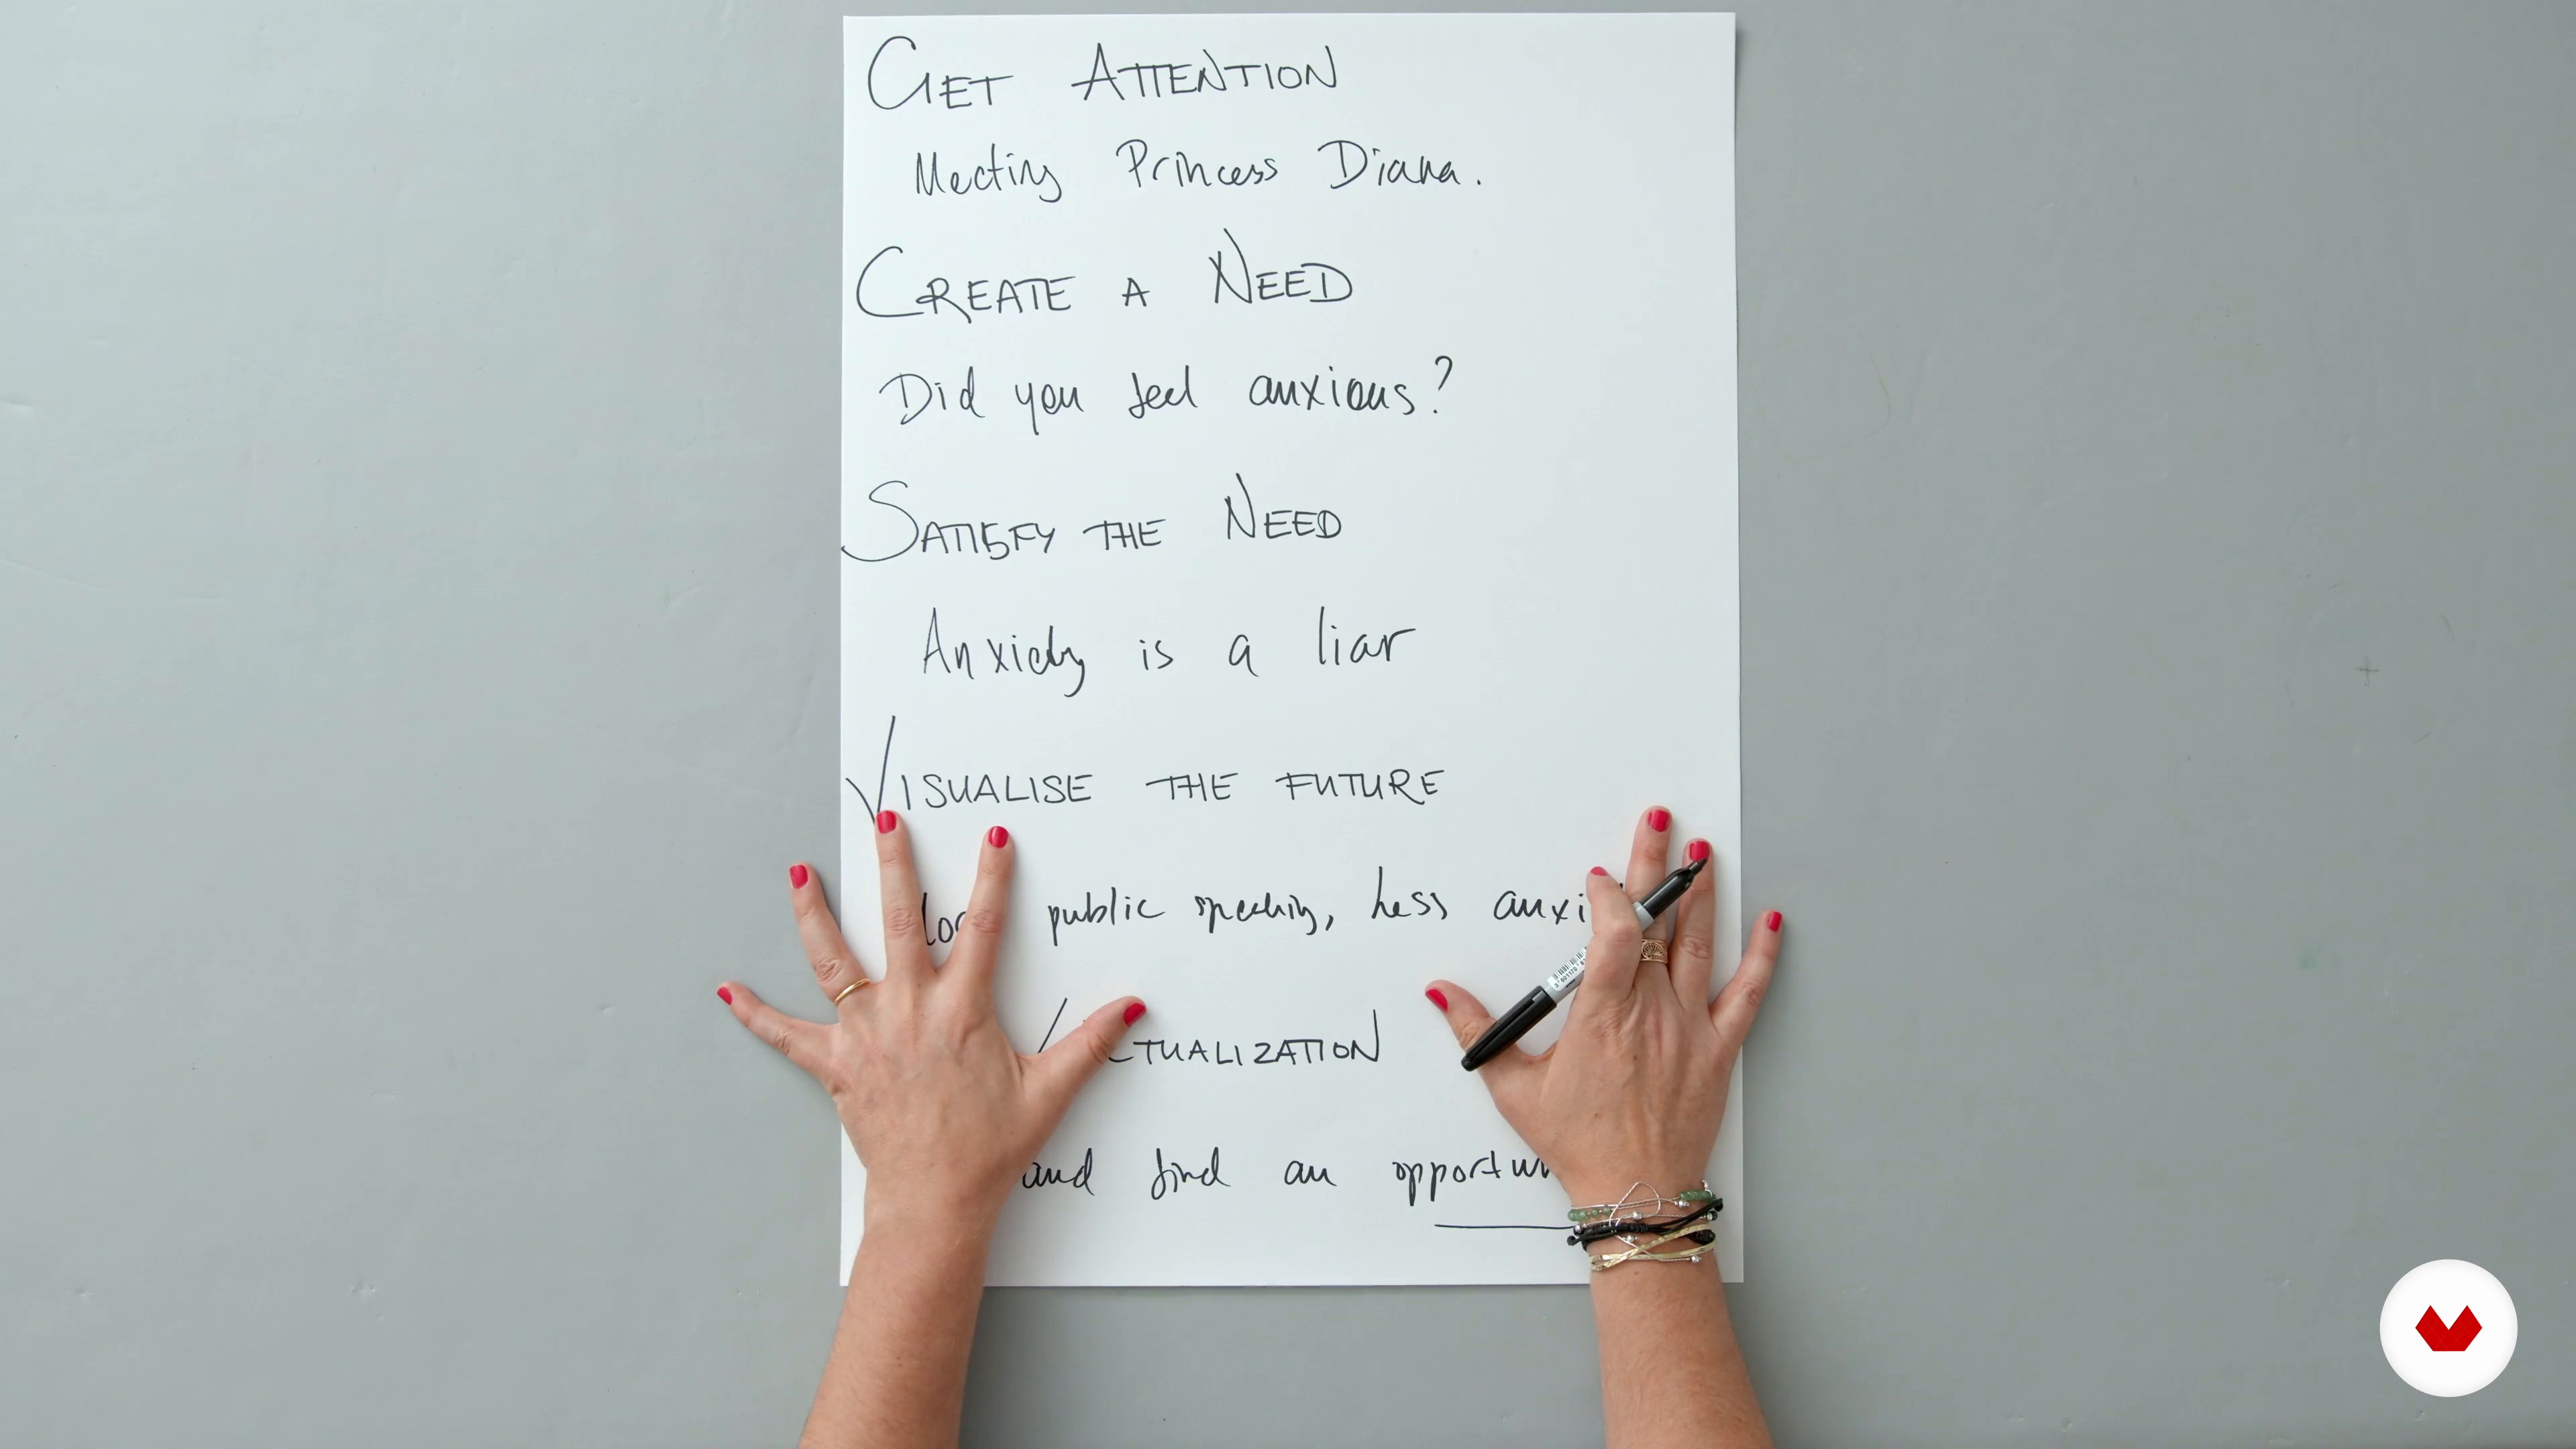 GET ATTENTION
Meeting Princess Diana.
CREATE A NEED
Did you feel anxious?
SATISFY THE NEED
Anxiety is a liar
VISUALISE THE FUTURE
public speaking, less
and find an